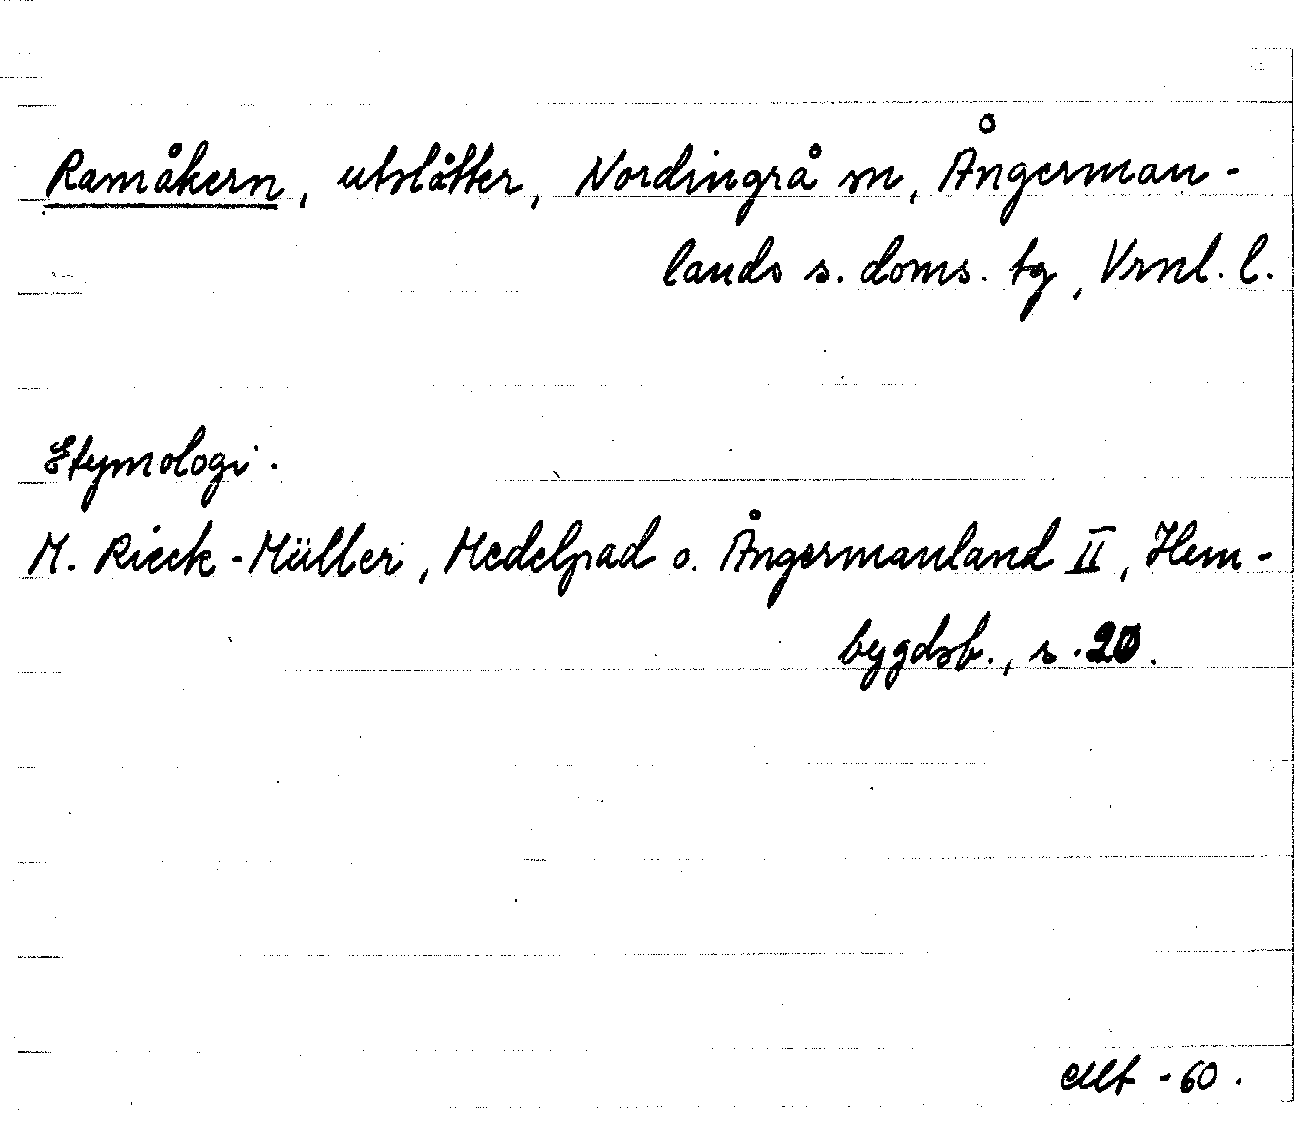 Ramåkern, utslåtter, Nordingrå sn, Ångerman-
lands s. doms. tg, Vrnl. l.
Etymologi.
M. Rieck-Müller, Medelpad o. Ångermanland II, Hem-
bygdsb., s. 20.
-60.